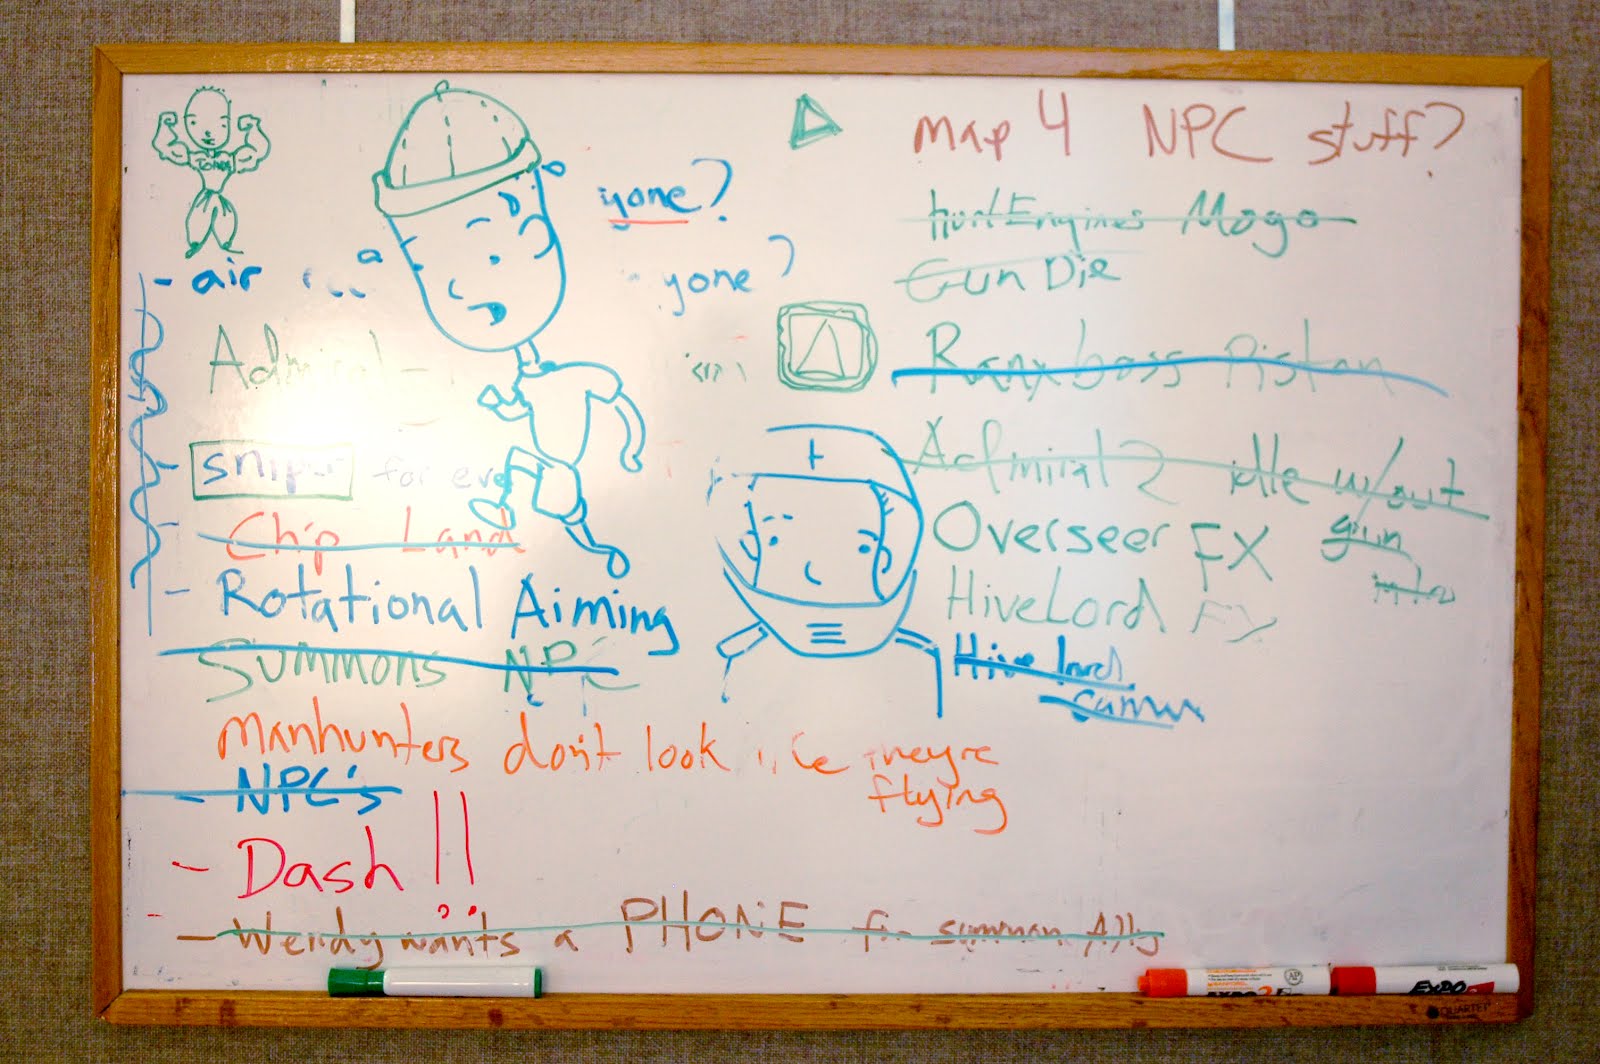 Jones
yone?
- air
yone?
Admiral -
sniper for eve
Chip Land
- Rotational Aiming
Summons NPC
Manhunters don't look like they're
flying
- NPC's
- Dash!!
- Wendy wants a PHONE for summon Ally
Map 4 NPC stuff?
hurtEngines Mogo
Gun Die
Ranxboss Piston
Admiral 2 idle w/out
gun
into
Overseer FX
HiveLord FX
Hive lord
EXPO
EXPO
QUARTET